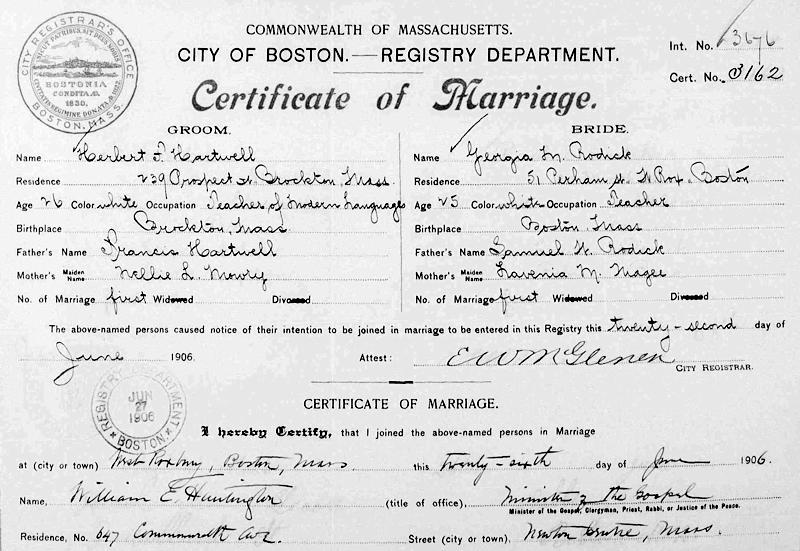 COMMONWEALTH OF MASSACHUSETTS.
CITY OF BOSTON.—REGISTRY DEPARTMENT.
Int. No. 3676
Cert. No. 3162
Certificate of Marriage.
CITY REGISTRAR'S OFFICE
BOSTONIA
CONDITA A.D.
1630.
BOSTON, MASS.
GROOM.
Name Herbert F. Hartwell
Residence 239 Prospect St. Brockton, Mass.
Age 26 Color white Occupation Teacher of Modern Languages
Birthplace Brockton, Mass
Father's Name Francis Hartwell
Mother's Maiden Name Nellie L. Mowry
No. of Marriage first Widowed Divorced
BRIDE.
Name Georgia M. Rodick
Residence 51 Perham St. W. Rox. Boston
Age 25 Color white Occupation Teacher
Birthplace Boston Mass
Father's Name Samuel W. Rodick
Mother's Maiden Name Lavenia M. Magee
No. of Marriage first Widowed Divorced
The above-named persons caused notice of their intention to be joined in marriage to be entered in this Registry this twenty-second day of
June 1906. Attest: E W McGlenen
CITY REGISTRAR.
REGISTRY DEPARTMENT
JUN
27
1906
BOSTON
CERTIFICATE OF MARRIAGE.
I hereby Certify, that I joined the above-named persons in Marriage
at (city or town) West Roxbury, Boston, Mass. this twenty-sixth day of June 1906.
Name, William E. Huntington (title of office), Minister of the Gospel
Minister of the Gospel, Clergyman, Priest, Rabbi, or Justice of the Peace.
Residence, No. 647 Commonwealth Ave. Street (city or town), Newton Centre, Mass.